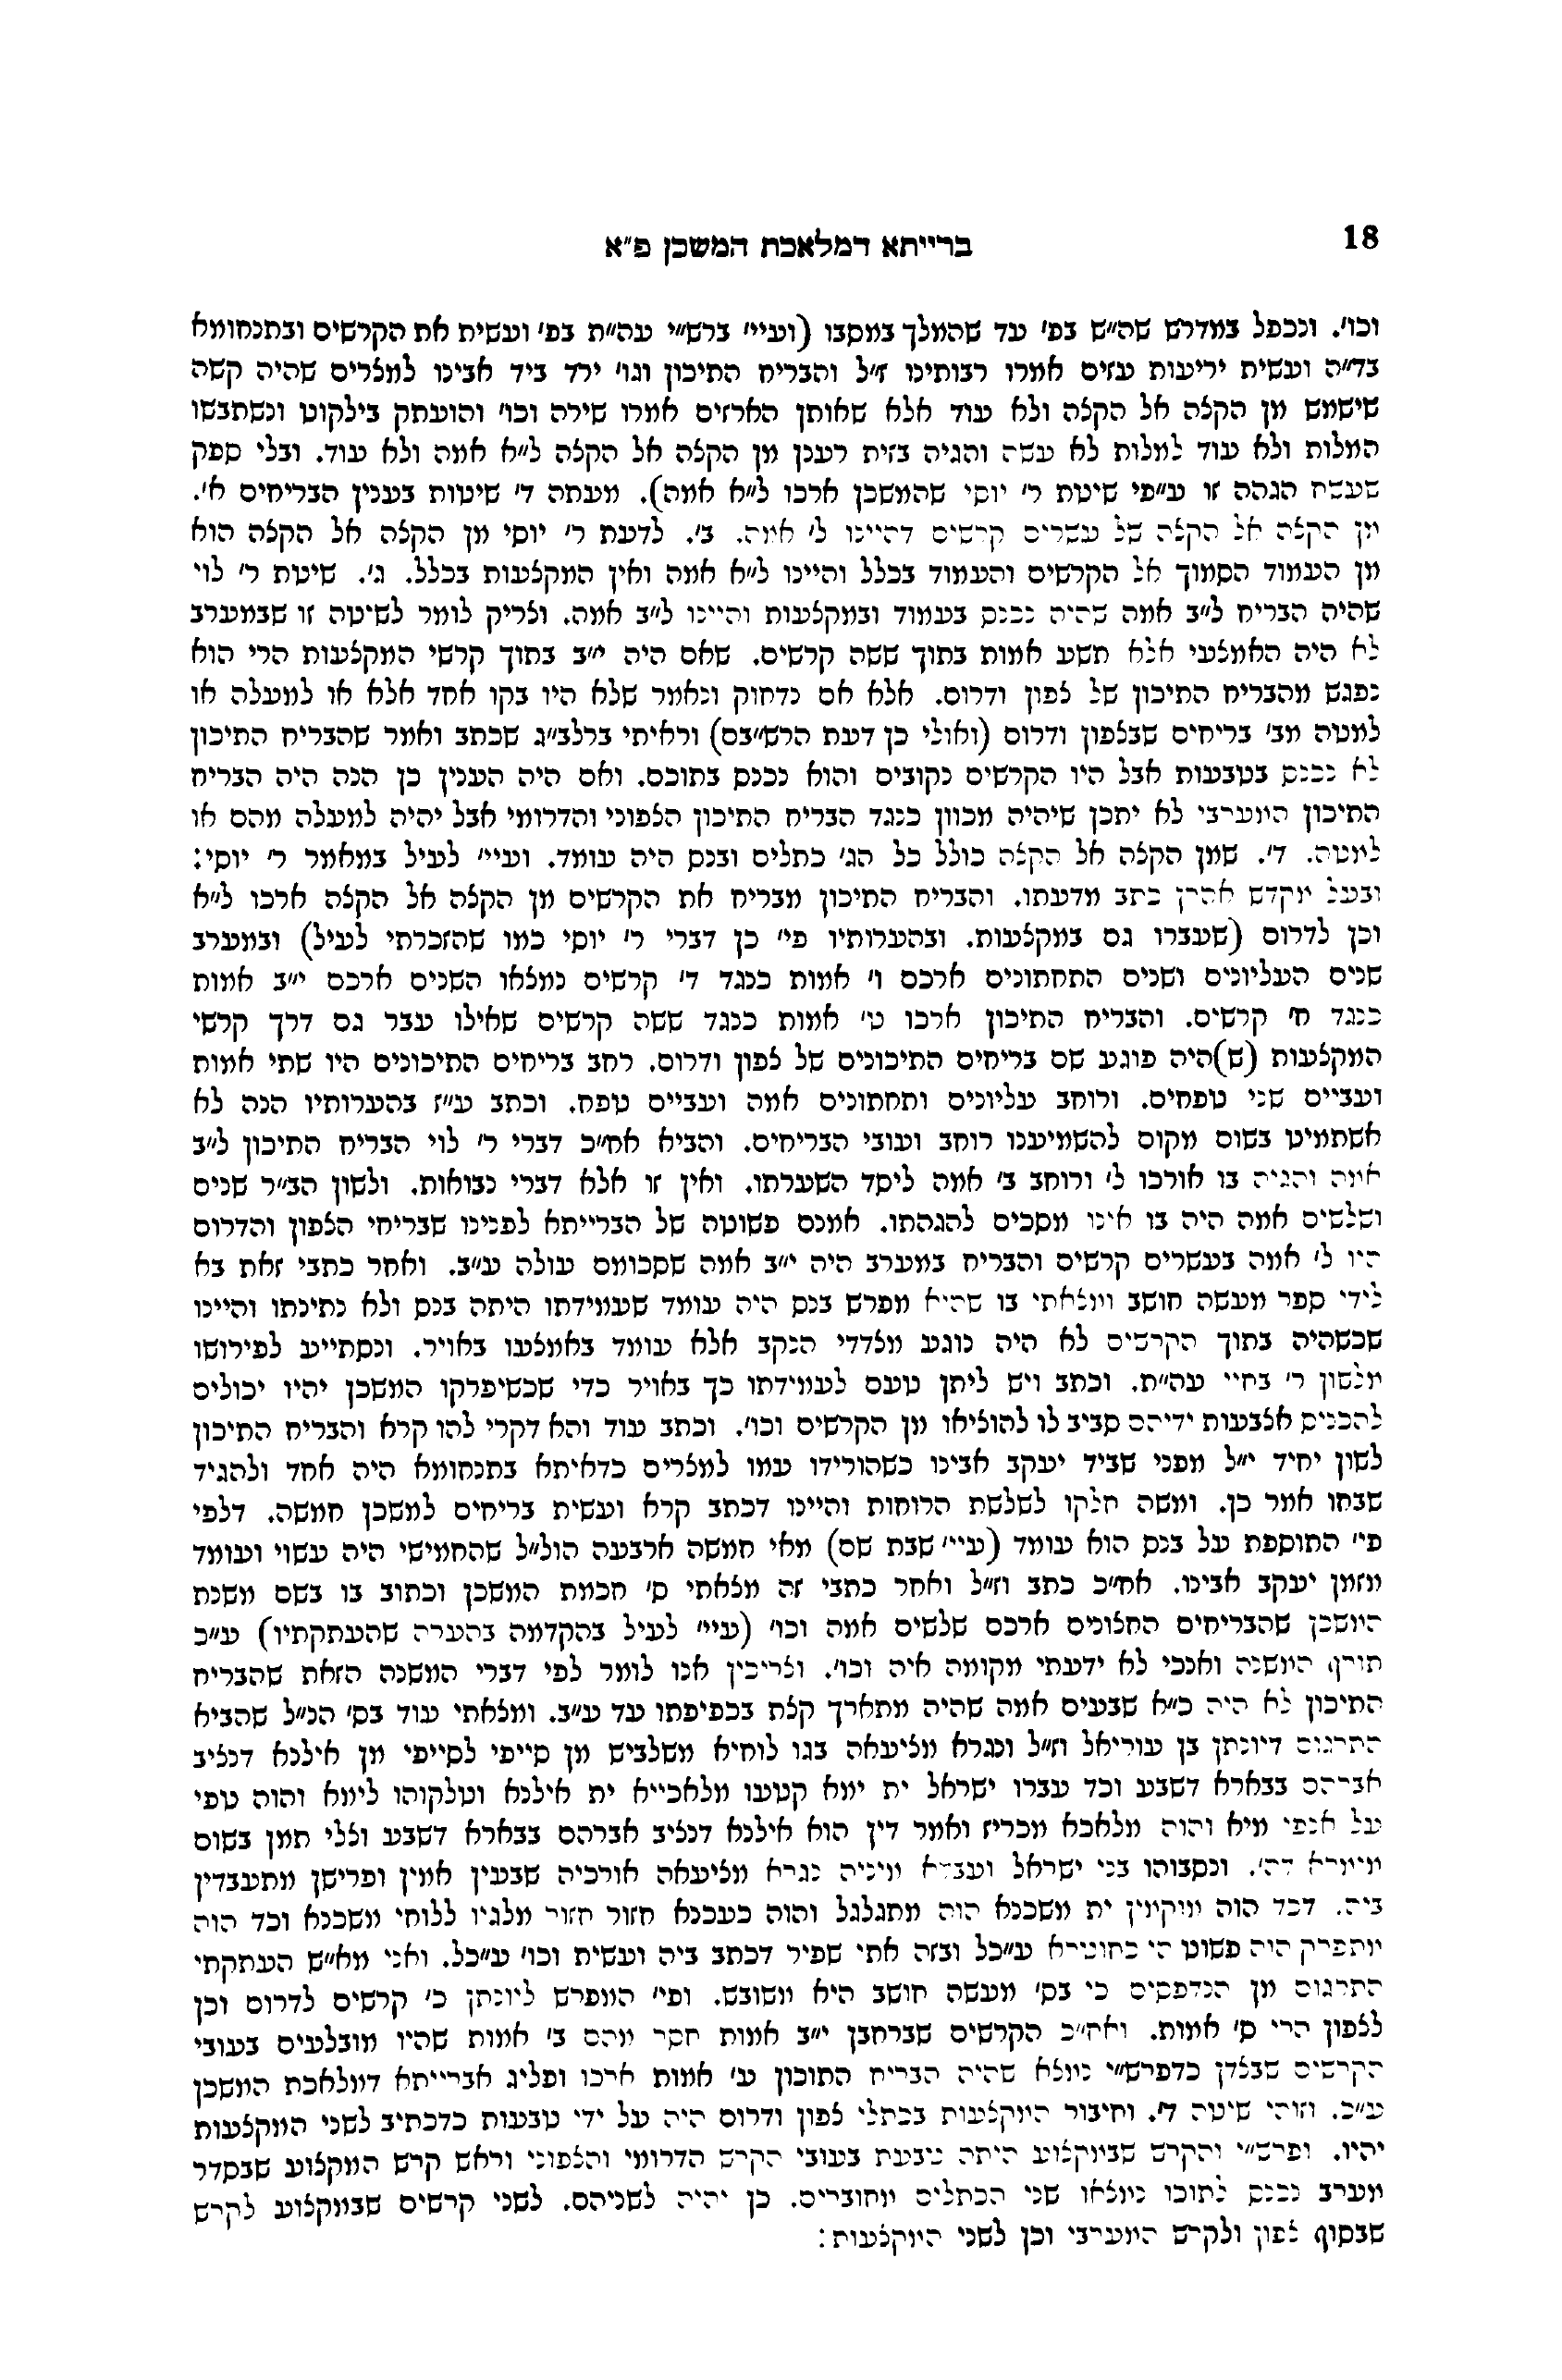 18
ברייתא דמלאכת המשכן פ״א
וכו׳. ונכפל במדרש שה״ש בפ׳ עד שהמלך במסבו (ועיי׳ ברש״י עה״ת בפ׳ ועשית את הקרשים ובתנחומא
בד״ה ועשית יריעות עזים אמרו רבותינו ז״ל והבריח התיכון וגו׳ ירד ביד אבינו למצרים שהיה קשה
שישמש מן הקצה אל הקצה ולא עוד אלא שאותן הארזים אמרו שירה וכו׳ והועתק בילקוט ונשתבשו
המלות ולא עוד למלות לא עשה והגיה בזית רענן מן הקצה אל הקצה ל״א אמה ולא עוד. ובלי ספק
שעשה הגהה זו ע״פ שיטת ר׳ יוסי שהמשכן ארכו ל״א אמה). מעתה ד׳ שיטות בענין הבריחים א׳.
מן הקצה אל הקצה של עשרים קרשים דהיינו ל׳ אמה. ב׳. לדעת ר׳ יוסי מן הקצה אל הקצה הוא
מן העמוד הסמוך אל הקרשים והעמוד בכלל והיינו ל״א אמה ואין המקצעות בכלל. ג׳. שיטת ר׳ לוי
שהיה הבריח ל״ב אמה שהיה נכנס בעמוד ובמקצעות והיינו ל״ב אמה. וצריק לומר לשיטה זו שבמערב
לא היה האמצעי אלא תשע אמות בתוך ששה קרשים. שאם היה י״ב בתוך קרשי המקצעות הרי הוא
נפגש מהבריח התיכון של צפון ודרום. אלא אם נדחוק ונאמר שלא היו בקו אחד אלא או למעלה או
למטה מב׳ בריחים שבצפון ודרום (ואולי כן דעת הרש״בם) וראיתי ברלב״ג שכתב ואמר שהבריח התיכון
לא נכנס בטבעות אבל היו הקרשים נקובים והוא נכנס בתוכם. ואם היה הענין כן הנה היה הבריח
התיכון המערבי לא יתכן שיהיה מכוון כנגד הבריח התיכון הצפוני והדרומי אבל יהיה למעלה מהם או
למטה. ד׳. שמן הקצה אל הקצה כולל כל הג׳ כתלים ובנס היה עומד. ועיי׳ לעיל במאמר ר׳ יוסי:
ובעל מקדש אהרן כתב מדעתו. והבריח התיכון מבריח את הקרשים מן הקצה אל הקצה ארכו ל״א
וכן לדרום (שעברו גם במקצעות. ובהערותיו פי׳ כן דברי ר׳ יוסי כמו שהזכרתי לעיל) ובמערב
שנים העליונים ושנים התחתונים ארכם ו׳ אמות כנגד ד׳ קרשים נמצאו השנים ארכם י״ב אמות
כנגד ח׳ קרשים. והבריח התיכון ארכו ט׳ אמות כנגד ששה קרשים שאילו עבר גם דרך קרשי
המקצעות (ש)היה פוגע שם בריחים התיכונים של צפון ודרום. רחב בריחים התיכונים היו שתי אמות
ועביים שני טפחים. ורוחב עליונים ותחתונים אמה ועביים טפח. וכתב ע״ז בהערותיו הנה לא
אשתמיט בשום מקום להשמיענו רוחב ועובי הבריחים. והביא אח״כ דברי ר׳ לוי הבריח התיכון ל״ב
אמה והגיה בו אורכו ל׳ ורוחב ב׳ אמה ליסד השערתו. ואין זו אלא דברי נבואות. ולשון הב״ר שנים
ושלשים אמה היה בו אינו מסכים להגהתו. אמנם פשוטה של הברייתא לפנינו שבריחי הצפון והדרום
היו ל׳ אמה בעשרים קרשים והבריח במערב היה י״ב אמה שסכומם עולה ע״ב. ואחר כתבי זאת בא
לידי ספר מעשה חושב ומצאתי בו שהיא מפרש בנס היה עומד שעמידתו היתה בנס ולא נתינתו והיינו
שכשהיה בתוך הקרשים לא היה נוגע מצדדי הנקב אלא עומד באמצעו באויר. ונסתייע לפירושו
מלשון ר׳ בחיי עה״ת. וכתב ויש ליתן טעם לעמידתו כך באויר כדי שכשיפרקו המשכן יהיו יכולים
להכניס אצבעות ידיהם סביב לו להוציאו מן הקרשים וכו׳. וכתב עוד והא דקרי להו קרא והבריח התיכון
לשון יחיד י״ל מפני שביד יעקב אבינו כשהורידו עמו למצרים כדאיתא בתנחומא היה אחד ולהגיד
שבחו אמר כן. ומשה חלקו לשלשת הרוחות והיינו דכתב קרא ועשית בריחים למשכן חמשה. דלפי
פי׳ התוספת על בנס הוא עומד (עיי׳ שבת שם) מאי חמשה ארבעה הול״ל שהחמישי היה עשוי ועומד
מזמן יעקב אבינו. אח״כ כתב וז״ל ואחר כתבי זה מצאתי ס׳ חכמת המשכן וכתוב בו בשם משנת
המשכן שהבריחים החצונים ארכם שלשים אמה וכו׳ (עיי׳ לעיל בהקדמה בהערה שהעתקתיו) ע״כ
תורף המשנה ואנכי לא ידעתי מקומה איה וכו׳. וצריכין אנו לומר לפי דברי המשנה הזאת שהבריח
התיכון לא היה כ״א שבעים אמה שהיה מתארך קצת בכפיפתו עד ע״ב. ומצאתי עוד בס׳ הנ״ל שהביא
התרגום דיונתן בן עוריאל וז״ל ונגרא מציעאה בגו לוחיא משלביש מן סייפי לסייפי מן אילנא דנציב
אברהם בבארא דשבע וכד עברו ישראל ית ימא קטעו מלאכייא ית אילנא וטלקוהו לימא והוה טפי
על אנפי מיא והוה מלאכא מכריז ואמר דין הוא אילנא דנציב אברהם בבארא דשבע וצלי תמן בשום
מימרא דה׳. ונסבוהו בני ישראל ועבדא מיניה נגרא מציעאה אורכיה שבעין אמין ופרישן מתעבדין
ביה. דכד הוה מוקימין ית משכנא הוה מתגלגל והוה כעכנא חזור חזור מלגיו ללוחי משכנא וכד הוה
מתפרק הוה פשוט הי כחוטרא ע״כל ובזה אתי שפיר דכתב ביה ועשית וכו׳ ע״כל. ואני מא״ש העתקתי
התרגום מן הנדפסים כי בס׳ מעשה חושב היא משובש. ופי׳ המפרש ליונתן כ׳ קרשים לדרום וכן
לצפון הרי ס׳ אמות. ואח״כ הקרשים שברחבן י״ב אמות חסר מהם ב׳ אמות שהיו מובלעים בעובי
הקרשים שבצדן כדפרש״י נמצא שהיה הבריח התוכון ע׳ אמות ארכו ופליג אברייתא דמלאכת המשכן
ע״כ. וזוהי שיטה ד׳. וחיבור המקצעות בכתלי צפון ודרום היה על ידי טבעות כדכתיב לשני המקצעות
יהיו. ופרש״י והקרש שבמקצוע היתה טבעת בעובי הקרש הדרומי והצפוני וראש קרש המקצוע שבסדר
מערב נכנס לתוכו נמצאו שני הכתלים מחוברים. כן יהיה לשניהם. לשני קרשים שבמקצוע לקרש
שבסוף צפון ולקרש המערבי וכן לשני המקצעות: